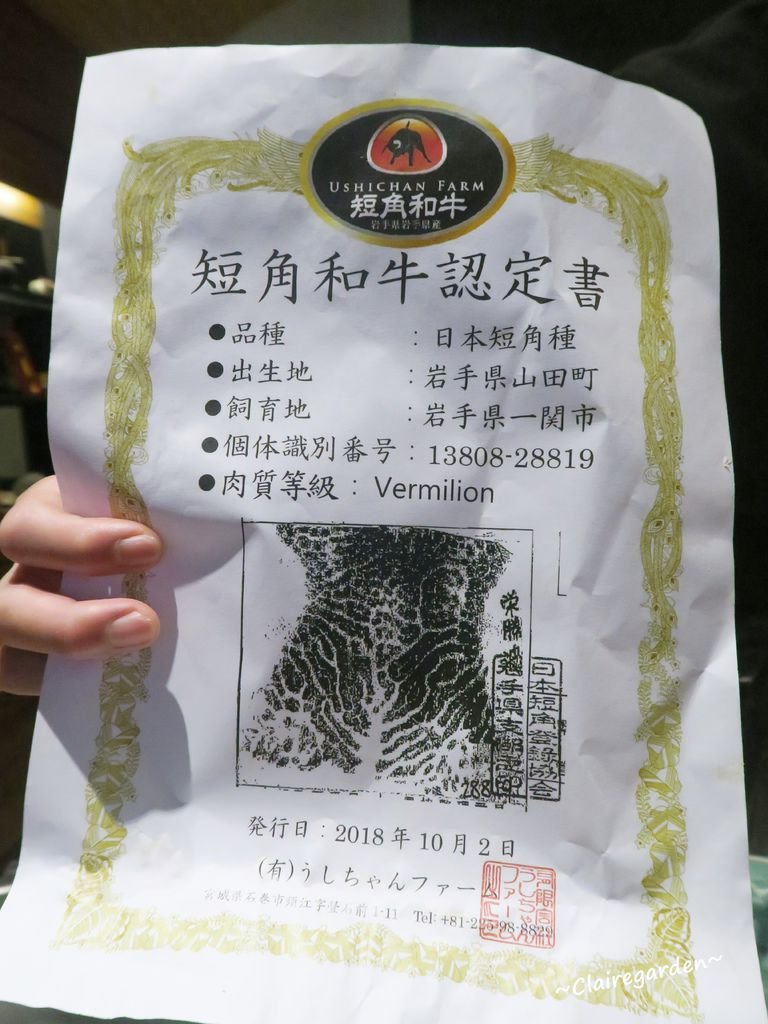 USHICHAN FARM
短角和牛
岩手県岩手県産
短角和牛認定書
●品種 : 日本短角種
●出生地 : 岩手県山田町
●飼育地 : 岩手県一関市
●個体識別番号 : 13808-28819
●肉質等級 : Vermilion
日本短角登録協会
発行日 : 2018 年 10 月 2 日
(有)うしちゃんファーム
宮城県石巻市須江字 石前 1-11 Tel: +81-225-98-8829
~Clairegarden~